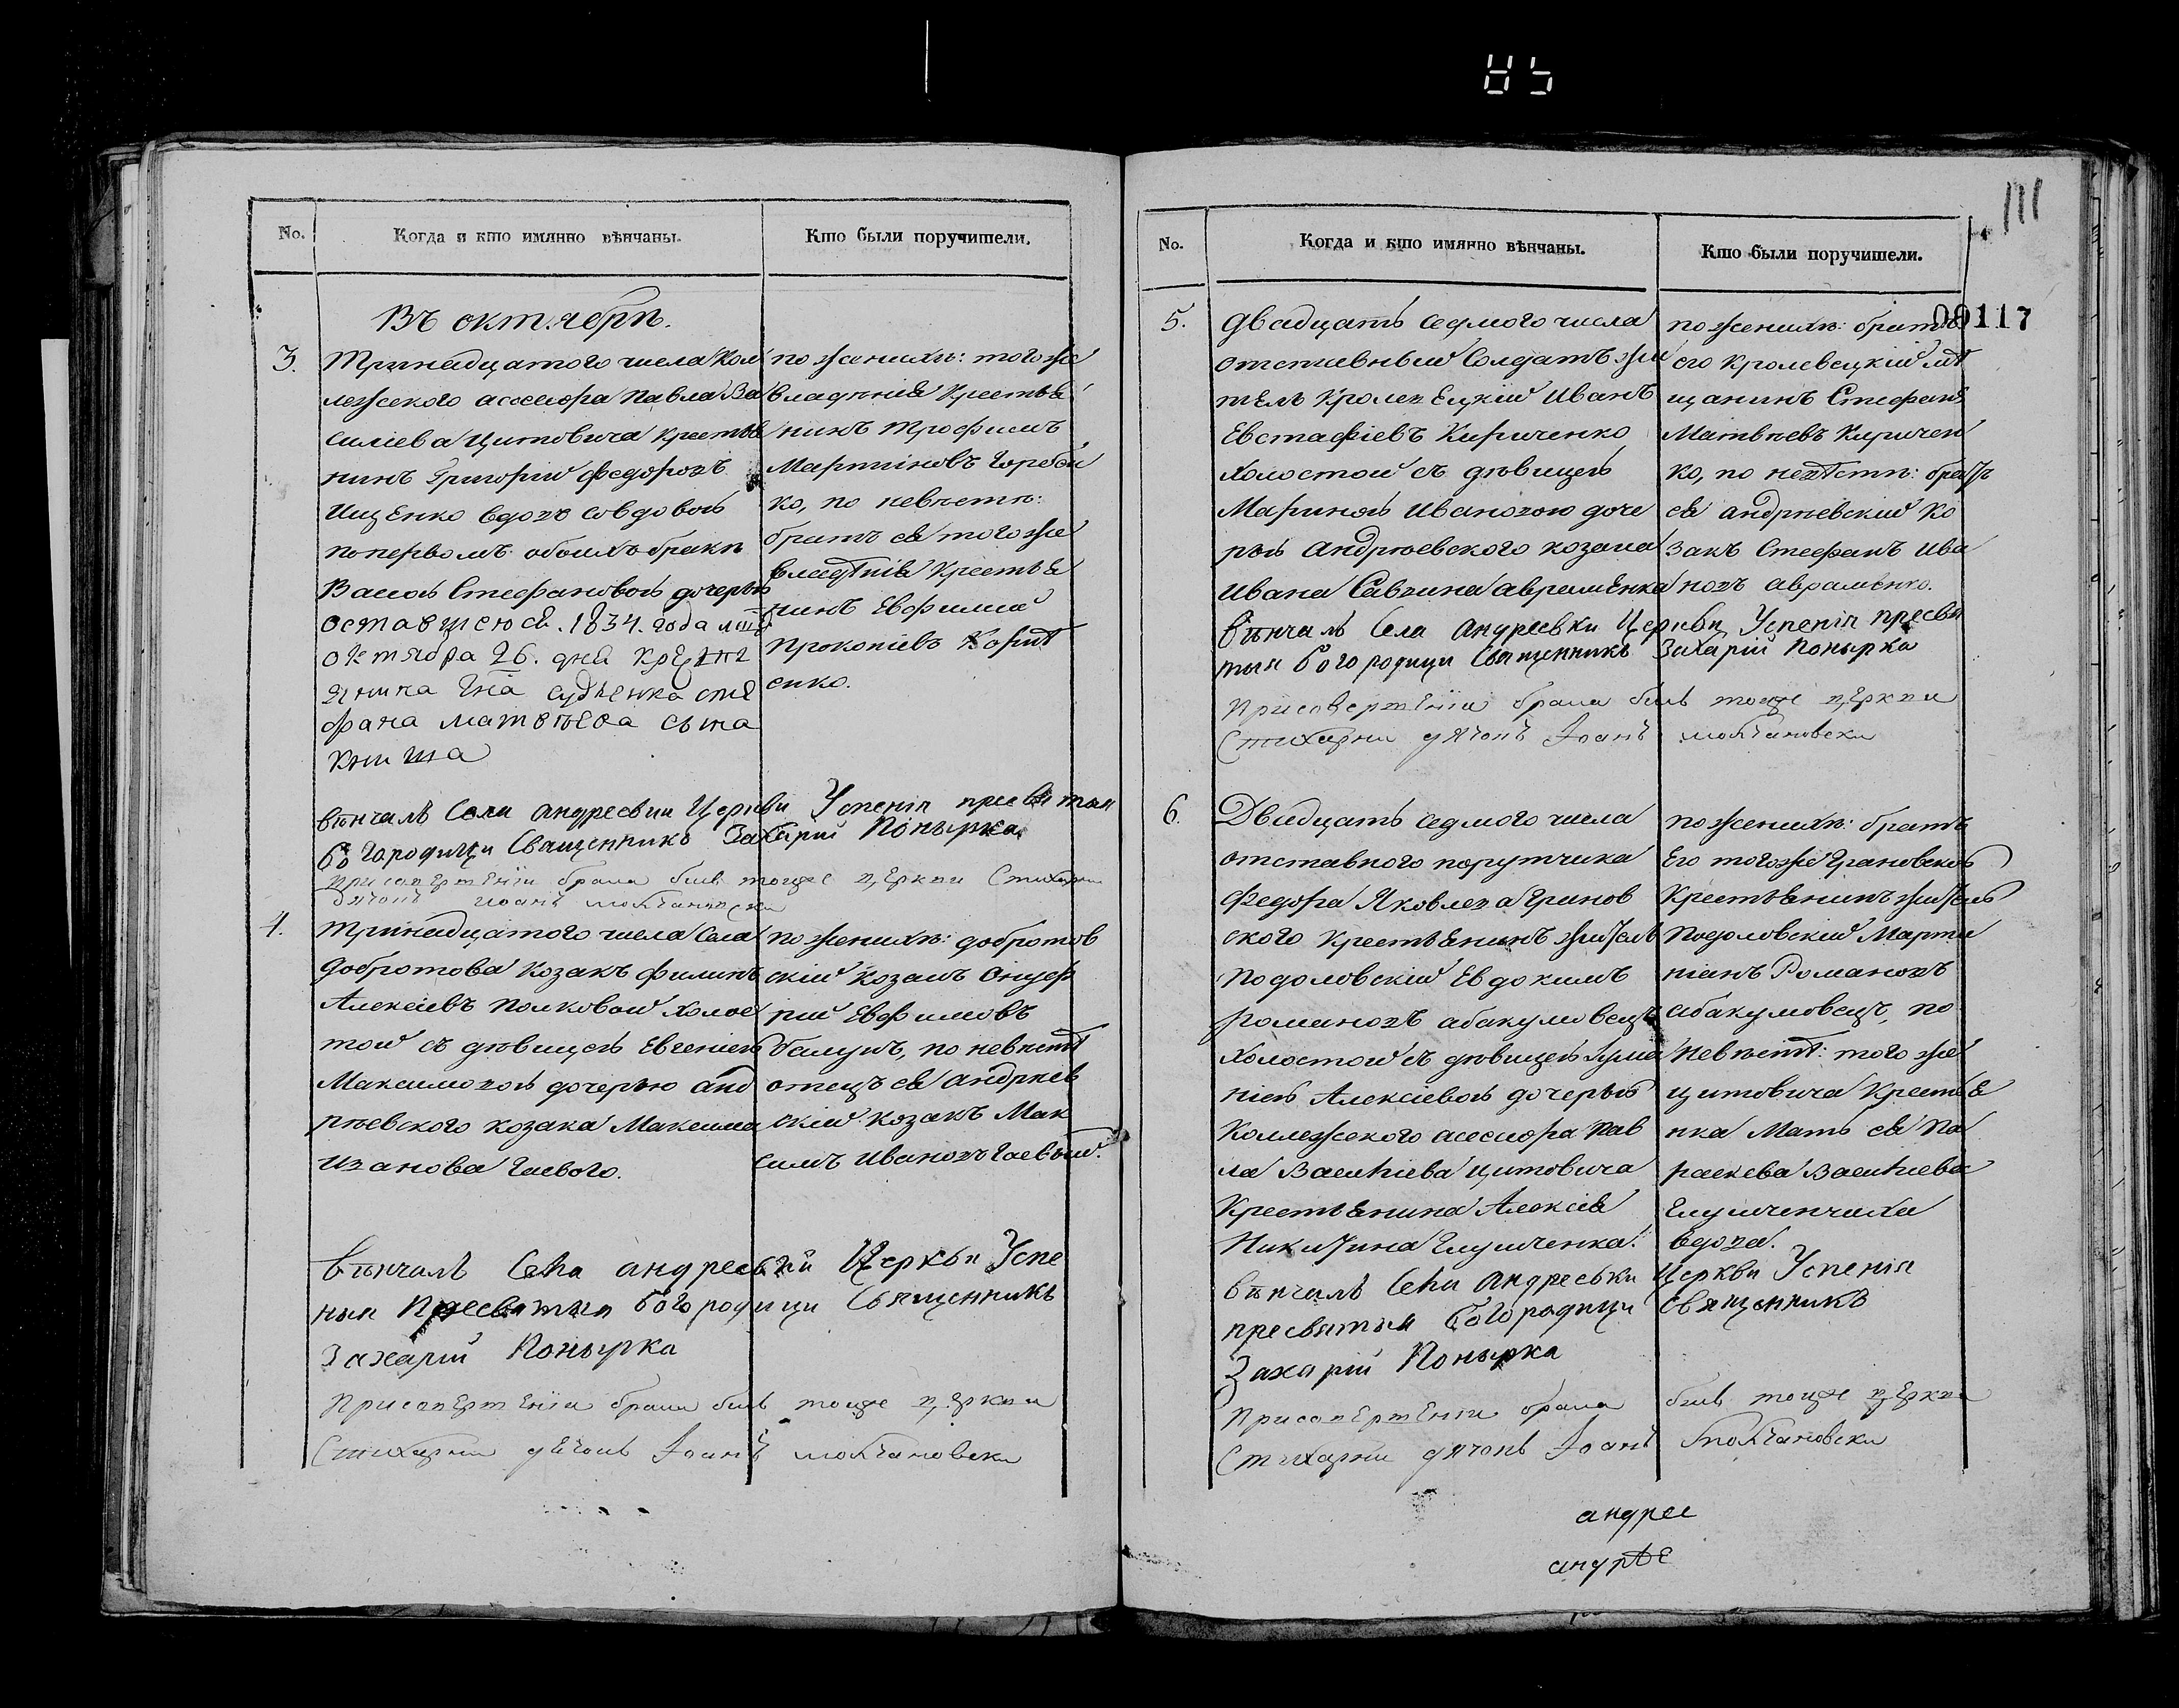 85
111
00117
No.
Когда и кто имянно вѣнчаны.
Кто были поручители.
Въ октябрѣ.
3.
Тринадцатого числа Кол
лежского асессора Павла Ва
силіева Цитовича крестья
нинъ Григорій Федоровъ
Ищенко вдовъ совдовою
поперьвомъ обоихъ бракѣ
Васою Стефановою дочерью
оставшеюся. 1834. года
октября 26. дня
гна судьенка сте
фана матвѣева сына
книша
по женихѣ: того же
владѣнія Крестья
нинъ Трофимъ
Мартиновъ Горбой
ко, по невѣстѣ:
братъ ея того же
владѣнія Крестья
нинъ Евфимій
Прокопіевъ
енко.
вѣнчалъ Села андреевки Церкви Успенія пресвятыя
богородици Священникъ Захарій Понырка
присовершеніи брака билъ тоиже церкви Стихарни
дячокъ иоанъ молчановски
4.
Тринадцатого числа Села
Добротова Козакъ Филипъ
Алексіевъ Полковой холос
той съ дѣвицею Евгеніею
Максимовою дочерью анд
рѣевского козака Максима
Иванова Гаевого.
по женихѣ: добротов
скій Козакъ Онуф
рій Евфимовъ
Балушъ, по невѣстѣ
отецъ ея андрѣев
скій козакъ Мак
симъ Ивановъ Гаевый.
вѣнчалъ Села андреевки Церкви Успе
ныя Пресвятыя богородици Священникъ
Захарій Понырка
присовершеніи брака билъ тоиже церкви
Стихарни дячокъ Іоанъ молчановски
No.
Когда и кто имянно вѣнчаны.
Кто были поручители.
5.
Двадцать седмого числа
отставный Солдатъ жи
тель Кролевецкій Иванъ
Евстафіевъ Кириченко
холостой съ дѣвицею
Мариною Ивановою доче
рью андрѣевского козака
Ивана Саввина авраменка
по женихѣ: братъ
его Кролевецкій мѣ
щанинъ Стефанъ
Матвѣевъ Киричен
ко, по невѣстѣ: братъ
ея андрѣевскій Ко
закъ Стефанъ Ива
новъ авраменко.
вѣнчалъ Села андреевки Церкви Успенія пресвя
тыя богородици Священникъ Захарій Понырка
присовершеніи брака билъ тоиже церкви
Стихарни дячокъ Іоанъ молчановски
6.
Двадцать седмого числа
отставного порутчика
Федора Яковлева Гранов
ского крестьянинъ житель
Подоловскій Евдокимъ
Романовъ абакумовецъ
холостой съ дѣвицею
ніею Алексіевою дочерью
Коллежского асессора Пав
ла Василіева Цитовича
Крестьянина Алексія
Никитина Глущенка.
по женихѣ: братъ
Его того же Грановского
Крестьянинъ житель
Подоловскій Марти
ніанъ Романовъ
абакумовецъ, по
невѣстѣ: того же
цитовича Крестья
нка Мать ея Па
раскева Василіева
Глущенчиха
вдова.
вѣнчалъ Села андреевки Церкви Успенія
пресвятыя богородици священникъ
Захарій Понырка
присовершеніи брака билъ тоиже церкви
Стихарни дячокъ Іоанъ молчановски
андрее
андрѣе